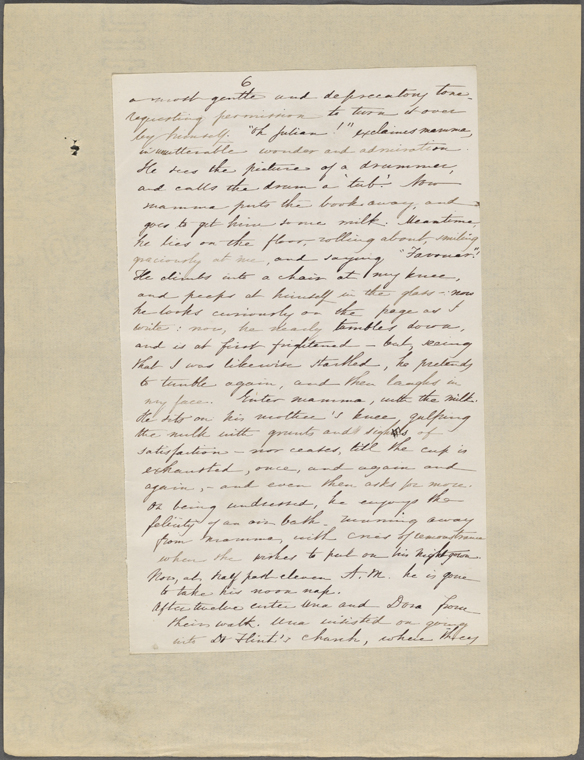 6
a most gentle and deprecatory tone
requesting permission to turn it over
by himself. "Oh Julian!" exclaims mamma,
in unutterable wonder and admiration.
He sees the picture of a drummer,
and calls the drum a 'tub'. Now
mamma puts the book away, and
goes to get him some milk. Meantime,
he lies on the floor, rolling about, smiling
graciously at me, and saying "Favouer".
He climbs into a chair at my knee,
and peeps at himself in the glass – now
he looks curiously on the page as I
write: now, he nearly tumbles down,
and is at first frightened – but, seeing
that I was likewise startled, he pretends
to tumble again, and then laughs in
my face. Enter mamma, with the milk.
He sits on his mother's knee, gulping
the milk with grunts and sighs of
satisfaction – nor ceases, till the cup is
exhausted, once, and again and
again, – and even then asks for more.
On being undressed, he enjoys the
felicity of an air bath – running away
from mamma, with cries of remonstrance
when she wishes to put on his night gown.
Now, at half past eleven A.M. he is gone
to take his noon nap.
After twelve enter Una and Dora from
their walk. Una insisted on going
into Dr Flint's church, where they